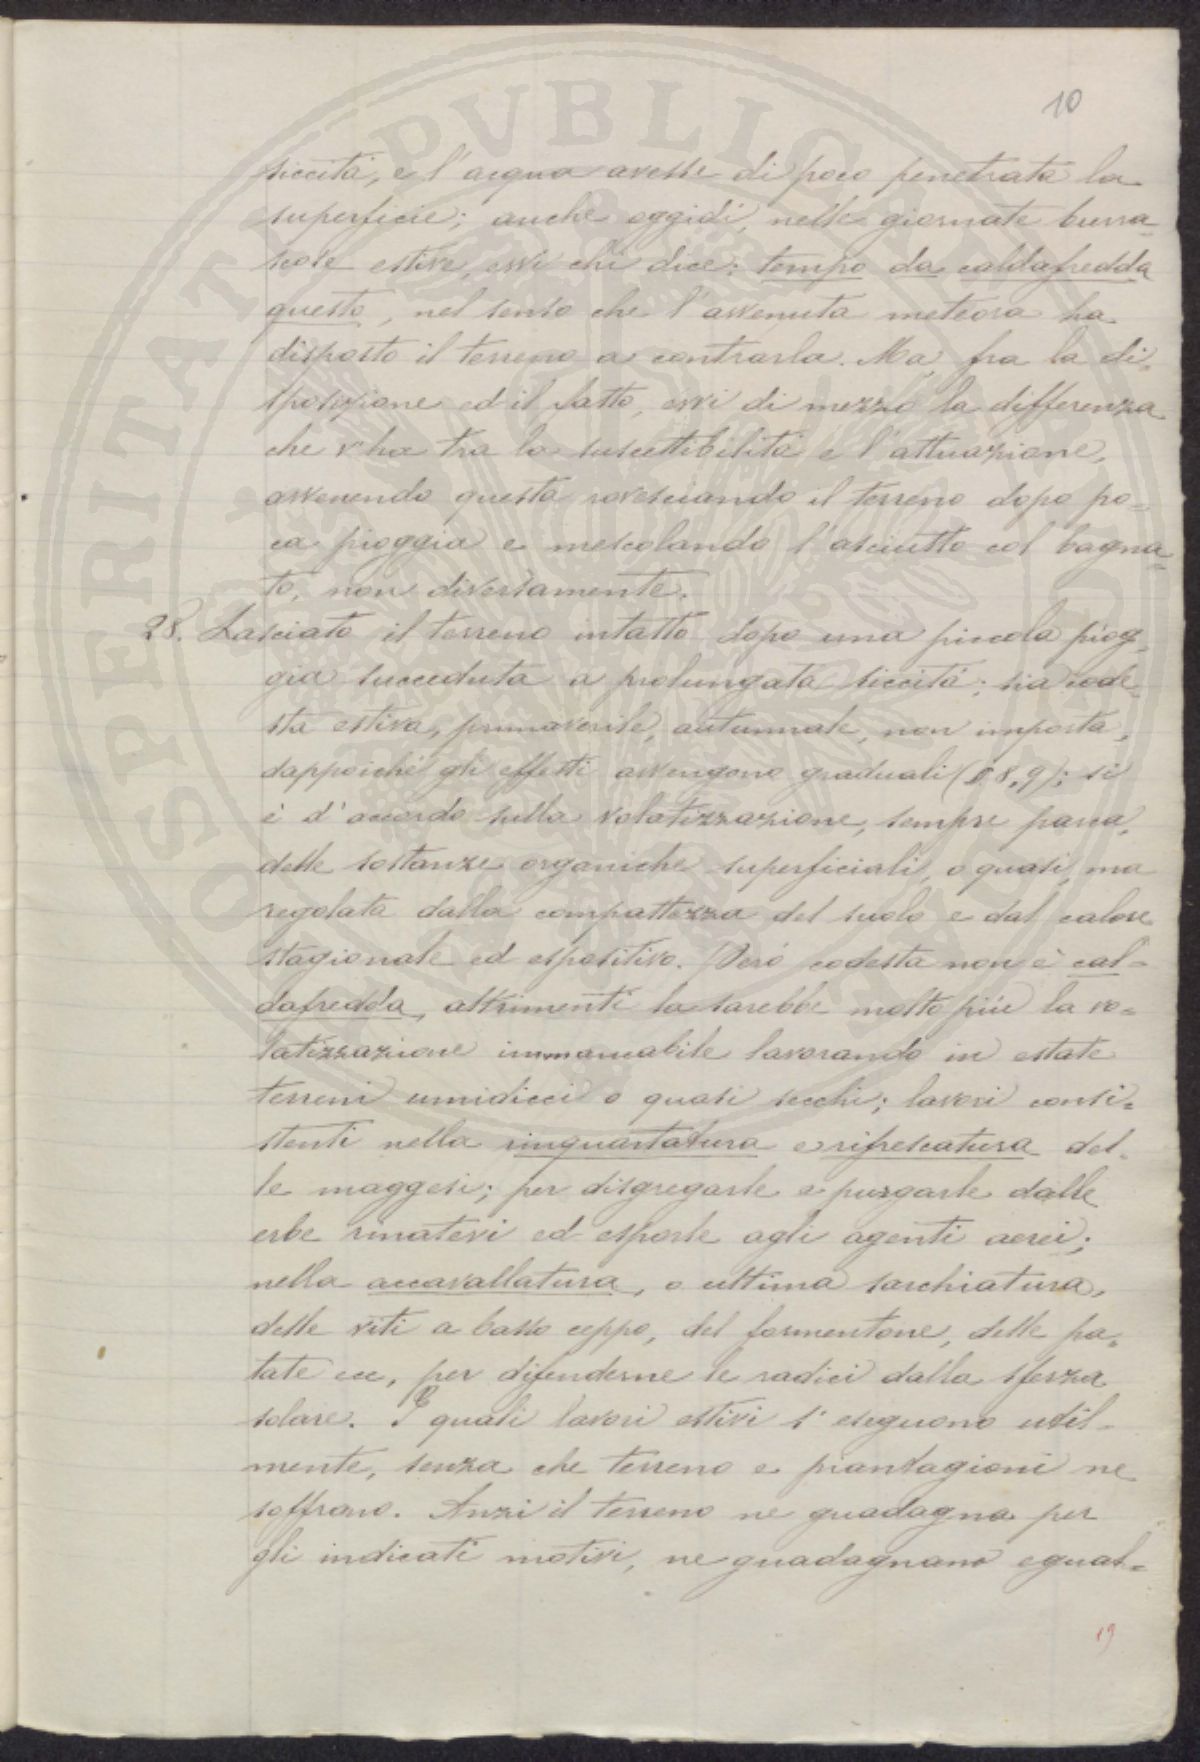 10
siccità, e l'acqua avesse di poco penetrata la
superficie; anche oggidì, nelle giornate burra-
scose estive, evvi chi dice: tempo da caldafredda
questo, nel senso che l'avvenuta meteora ha
disposto il terreno a contrarla. Ma, fra la di-
sposizione ed il fatto, evvi di mezzo la differenza
che v'ha tra la suscettibilità e l'attuazione,
avvenendo questa rovesciando il terreno dopo po-
ca pioggia e mescolando l'asciutto col bagna-
to, non diversamente.
28. Lasciato il terreno intatto dopo una piccola piog-
gia succeduta a prolungata siccità; sia code-
sta estiva, primaverile, autunnale, non importa,
dappoichè gli effetti avvengono graduali (§. 8, 9); si
è d'accordo sulla volatizzazione, sempre parca,
delle sostanze organiche superficiali, o quasi, ma
regolata dalla compattezza del suolo e dal calore
stagionale ed espositivo. Però codesta non è cal-
dafredda, altrimenti la sarebbe molto più la vo-
latizzazione immancabile lavorando in estate
terreni umidicci o quasi secchi; lavori consi-
stenti nella rinquartatura e rifrescatura del-
le maggesi; per disgregarle e purgarle dalle
erbe rinate ed esporle agli agenti aerei;
nella accavallatura, o ultima sarchiatura,
delle viti a basso ceppo, del formentone, delle pa-
tate ecc, per difenderne le radici dalla sferza
solare. I quali lavori estivi s'eseguono util-
mente, senza che terreno e piantagioni ne
soffrano. Anzi il terreno ne guadagna per
gli indicati motivi, ne guadagnano egual-
19
PVBLICAE
PROSPERITATI